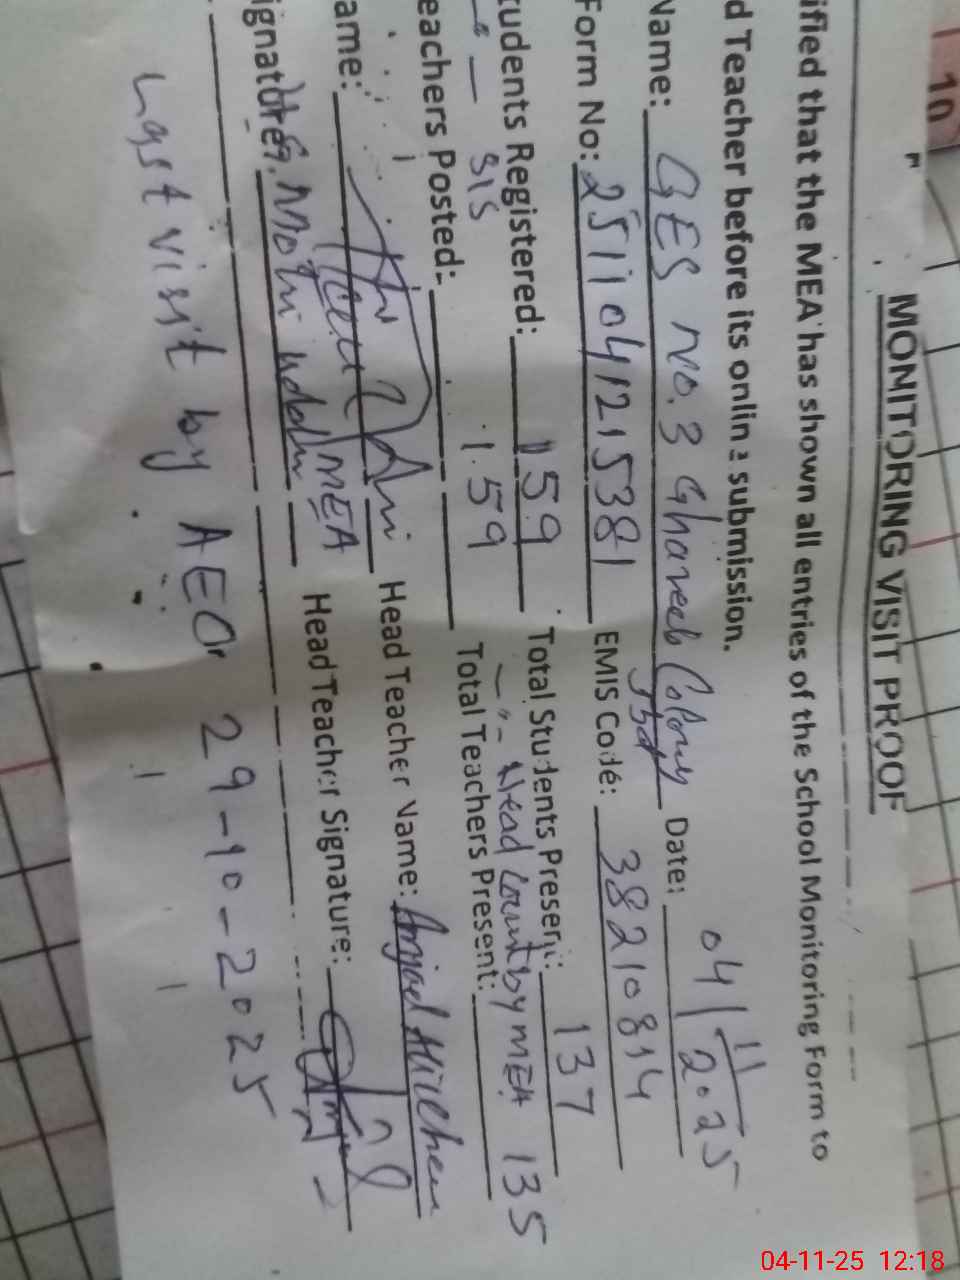 10
MONITORING VISIT PROOF
ified that the MEA has shown all entries of the School Monitoring Form to
d Teacher before its online submission.
Name: GES No. 3 Ghareeb Colony Jbd Date: 04/11/2025
Form No: 2511041215381 EMIS Code: 38210814
tudents Registered: 159 Total Students Present: 137
SIS 159 Head Count by MEA 135
eachers Posted: Total Teachers Present:
ame: Head Teacher Name: Amjad
ignature: MEA Head Teacher Signature:
Last visit by AEO 29-10-2025
04-11-25 12:18